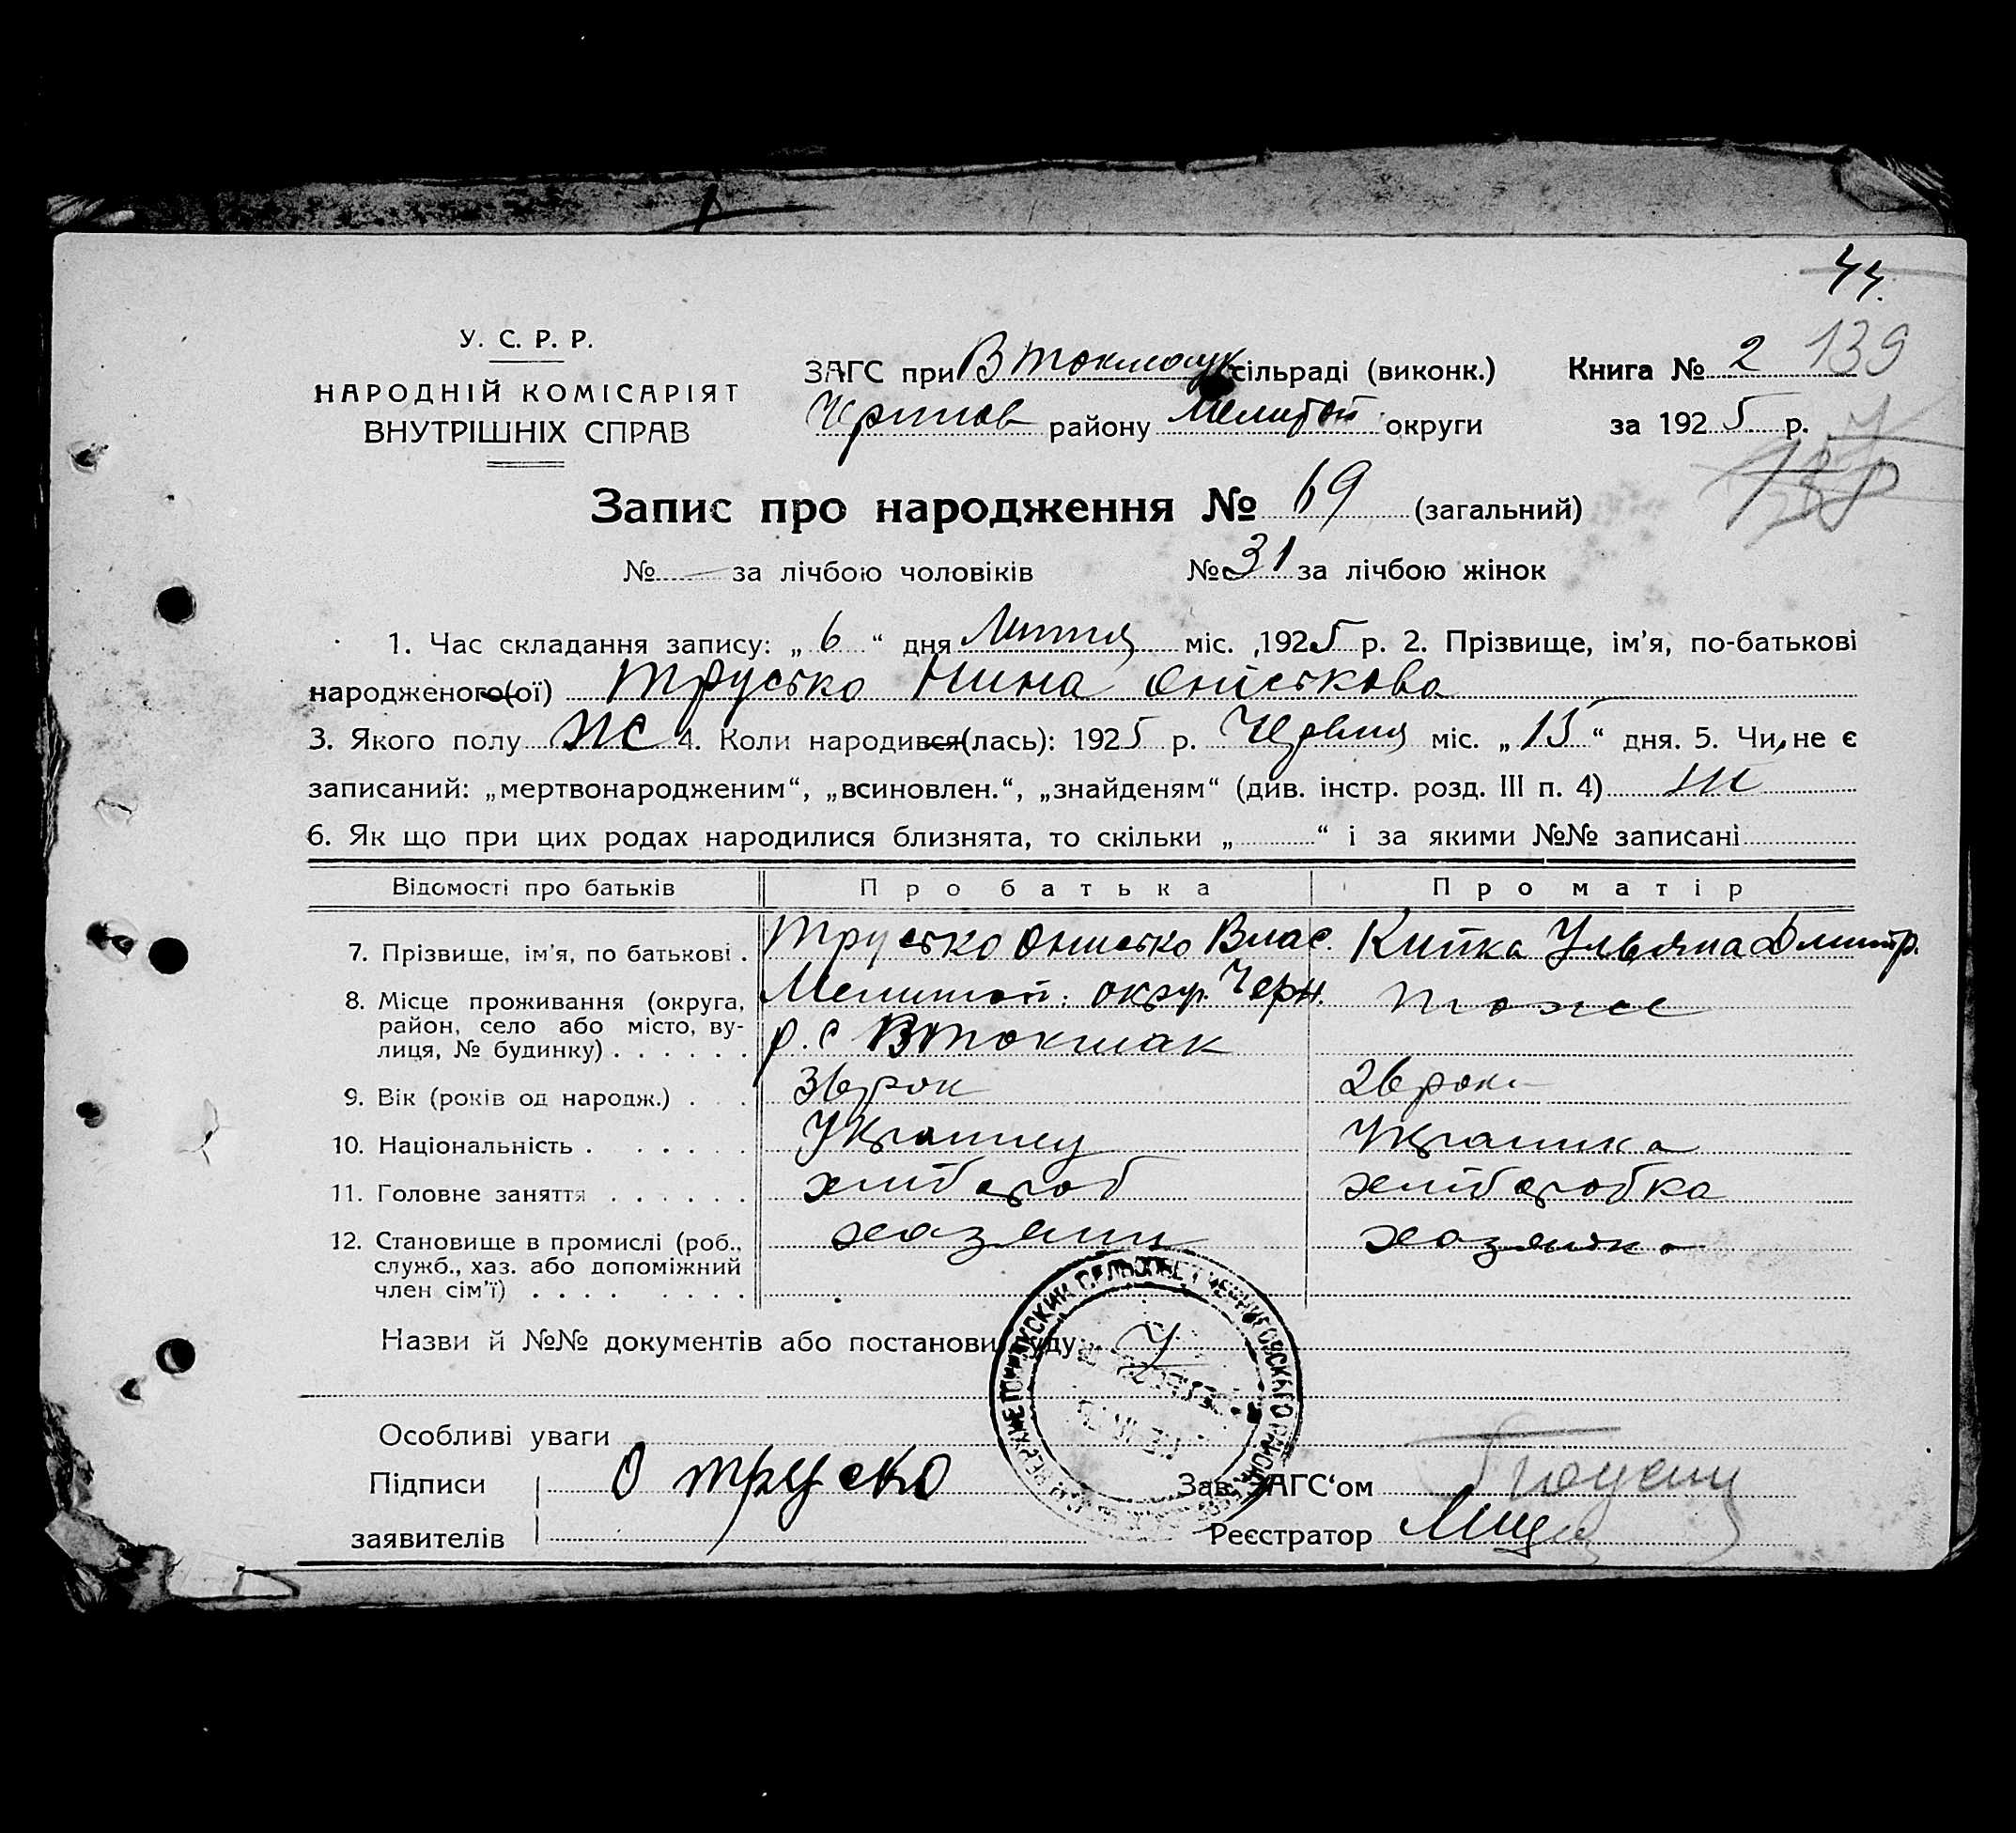 44.
У. С. Р. Р.
НАРОДНІЙ КОМІСАРІЯТ
ВНУТРІШНІХ СПРАВ
ЗАГС при В Токмацк сільраді (виконк.)
району Мелитоп. округи
Книга № 2 139
за 1925 р.
Запис про народження № 69 (загальний)
№ — за лічбою чоловіків № 31 за лічбою жінок
1. Час складання запису: „ 6 “ дня Липця міс. ,1925 р. 2. Прізвище, ім'я, по-батькові
народженого(ої) Трусько Нина Оніськова
3. Якого полу Ж 4. Коли народився(лась): 1925 р. Червня міс. „ 15 “ дня. 5. Чи, не є
записаний: „мертвонародженим“, „всиновлен.“, „знайденям“ (див. інстр. розд. III п. 4)
6. Як що при цих родах народилися близнята, то скільки „ “ і за якими №№ записані
Відомості про батьків Про батька Про матір
7. Прізвище, ім'я, по батькові . Трусько Онисько Влас. Китка Ульяна Дмитр.
8. Місце проживання (округа, Мелитоп. окр. Черн. тоже
район, село або місто, ву-
лиця, № будинку) . . . . . . р. с ВТокмак
9. Вік (років од народж.) . . . 36 рок 26 рок
10. Національність . . . . . . Украинец Украинка
11. Головне заняття . . . . . . хлібороб хліборобка
12. Становище в промислі (роб., хазяин хазяйка
служб., хаз. або допоміжний
член сім'ї) . . . . . . . .
Назви й №№ документів або постанови суду
Особливі уваги
Підписи О Труско Зав. ЗАГС'ом
заявителів Реєстратор